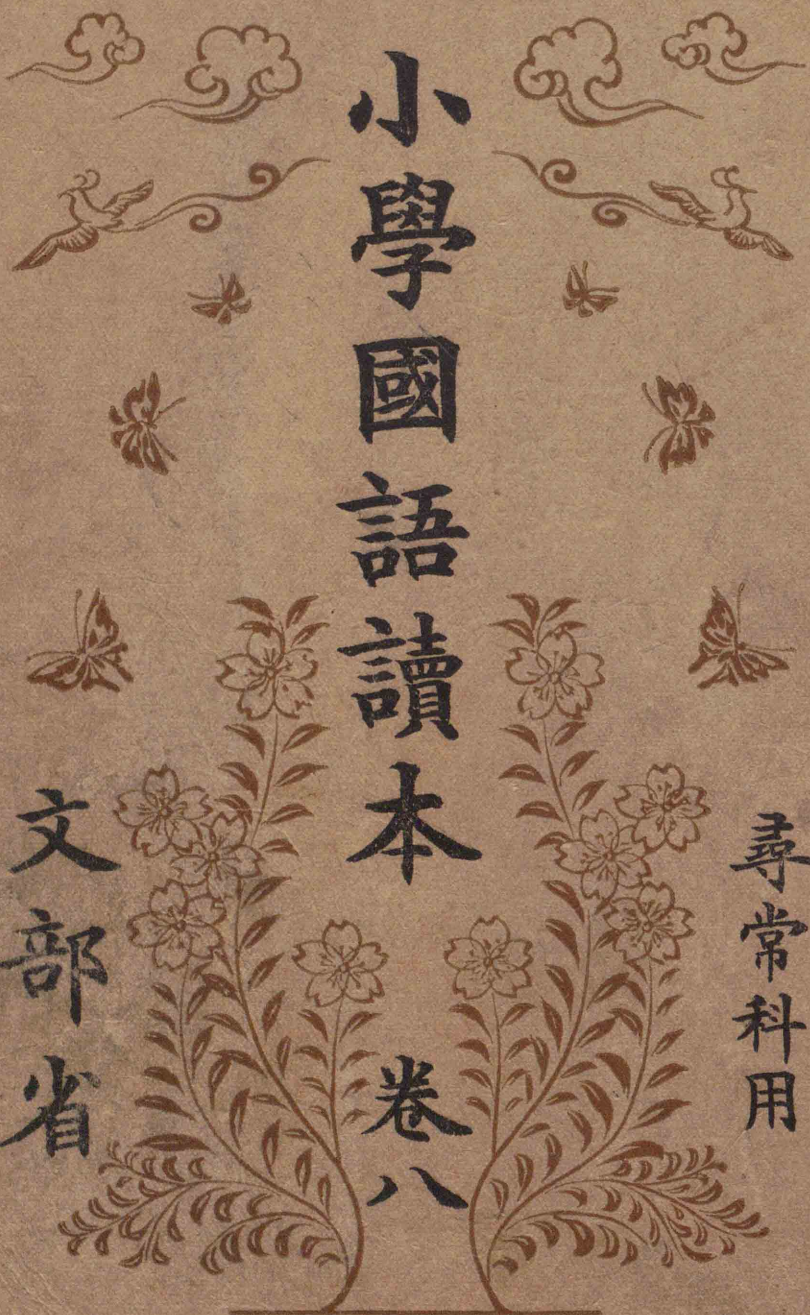 尋常科用
小學國語讀本
卷八
文部省